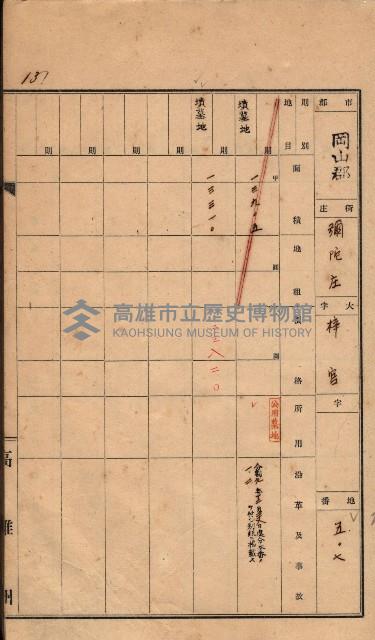 137
市郡 岡山郡
街庄 彌陀庄
大字 梓官
字
地番 五〇七
地目 則別
面積
地租額
價格
所用
沿革及事故
甲
圓
圓
墳墓地 則 一三九〇五
公用墓地
墳墓地 則 一三三一〇
三八二〇
則
則
則
則
則
高雄州
高雄市立歷史博物館
KAOHSIUNG MUSEUM OF HISTORY